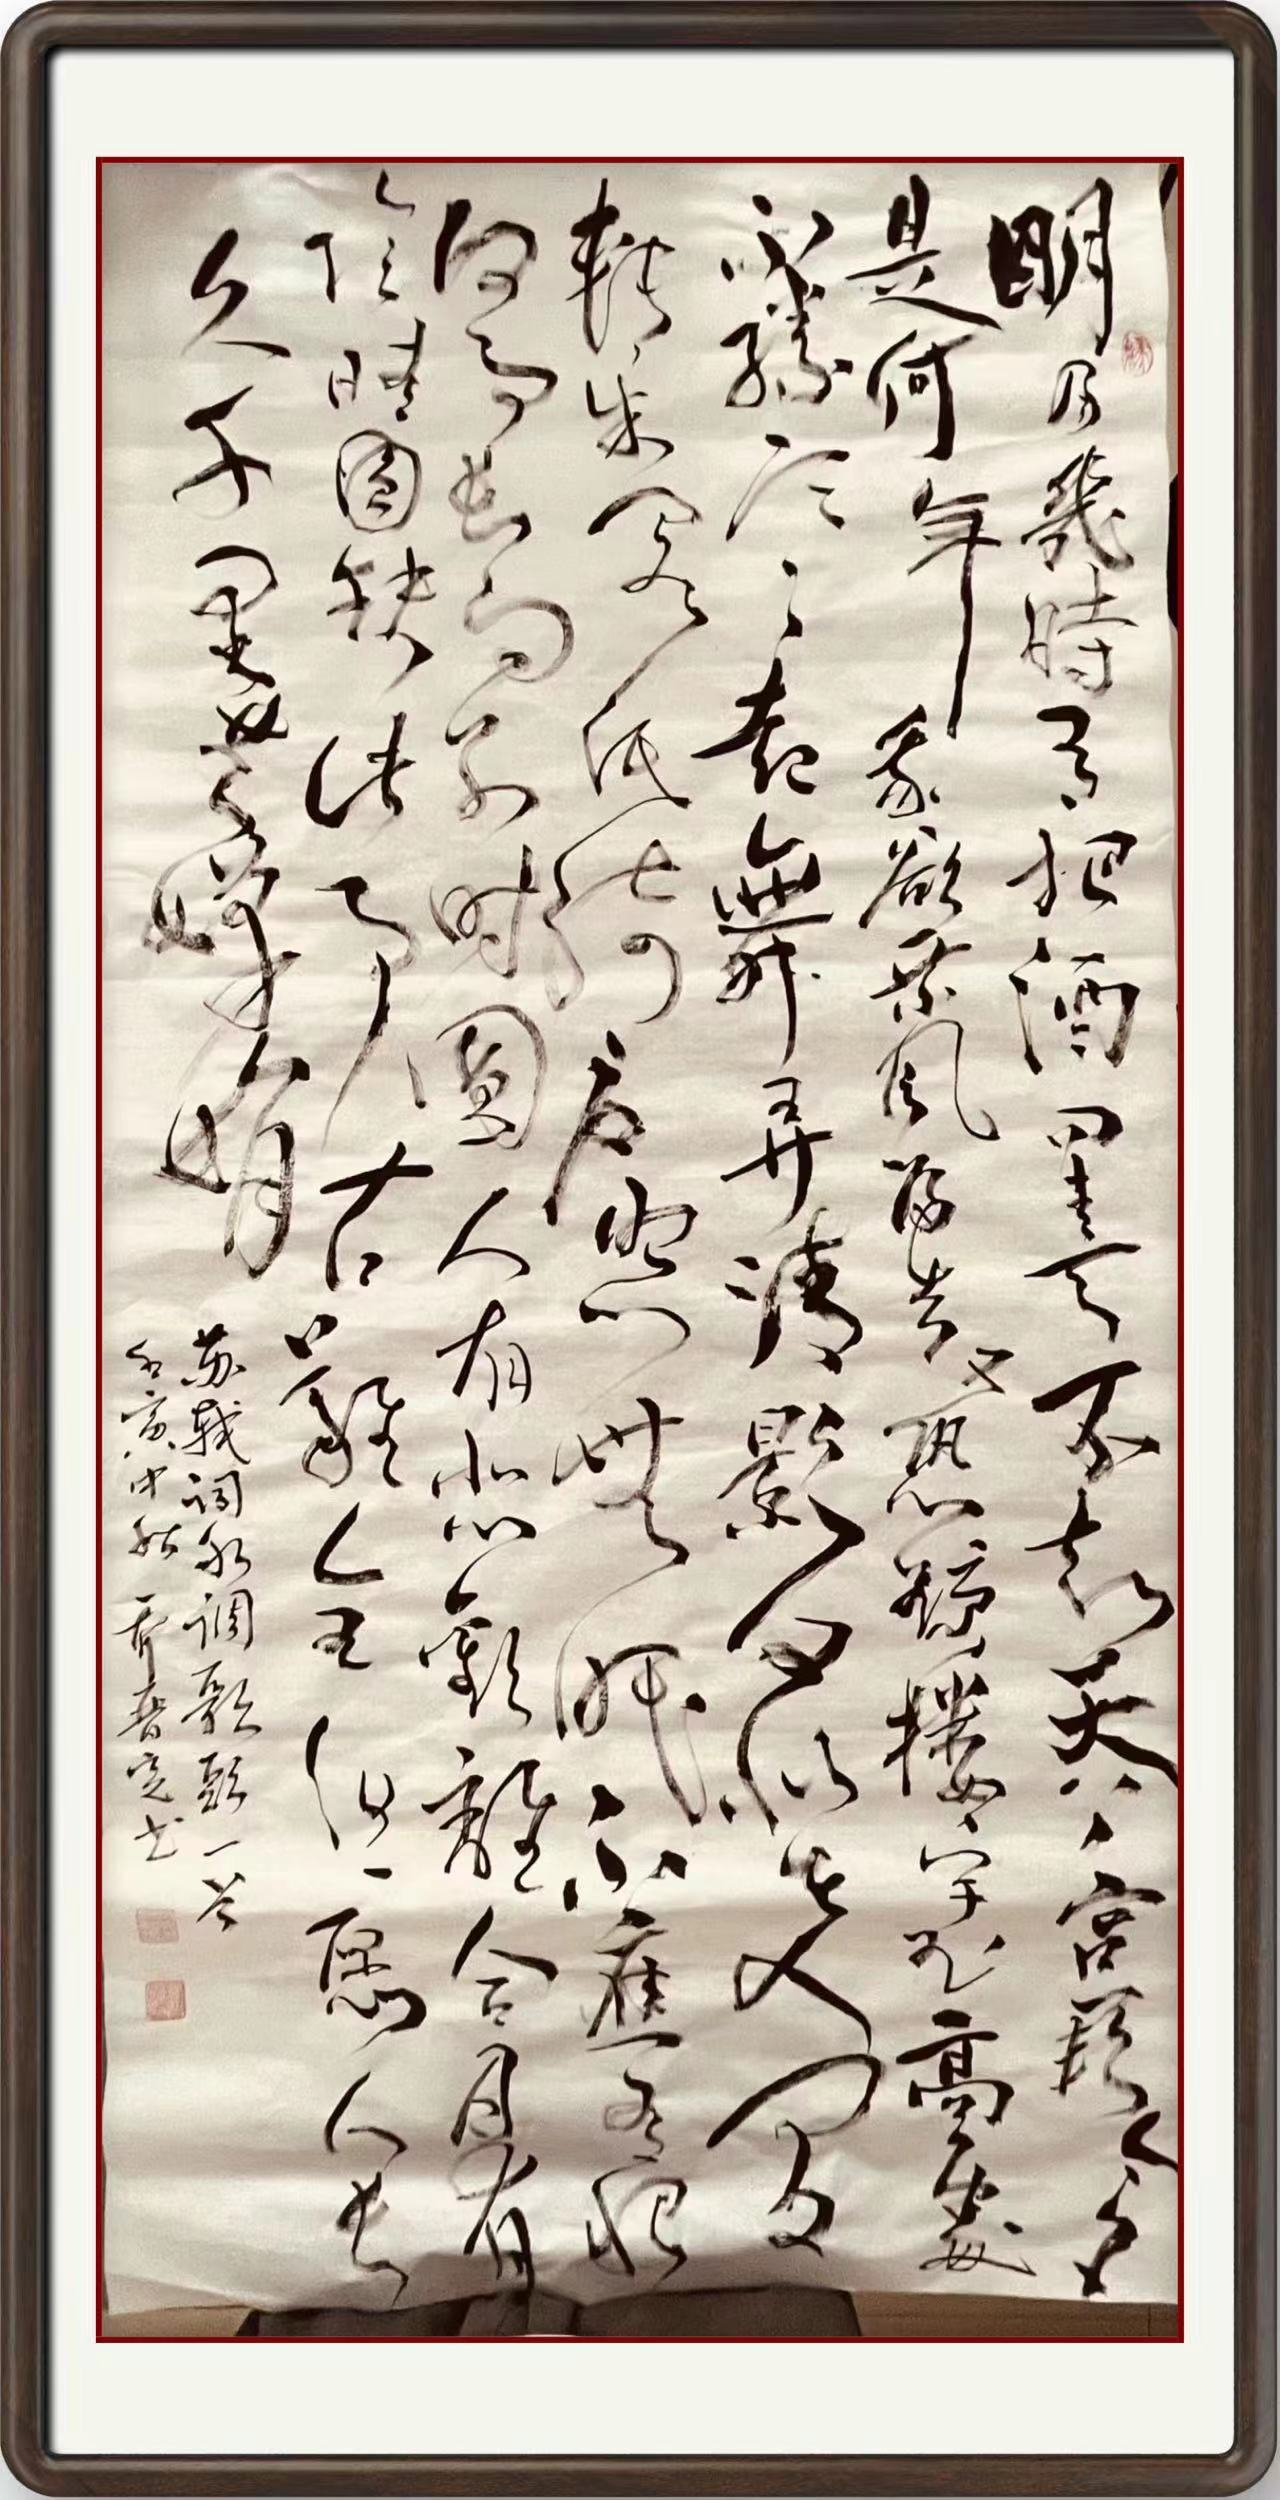 明月幾時有把酒问青天不知天上宫闕今夕
是何年我欲乘风归去又恐瓊樓玉宇高處
不勝寒起舞弄清影何似在人间
轉朱阁低绮户照無眠不應有恨
何事长向别时圆人有悲歡離合月有
陰晴圆缺此事古難全但愿人长
久千里共嬋娟
苏轼词水调歌头一首
壬寅中秋 书